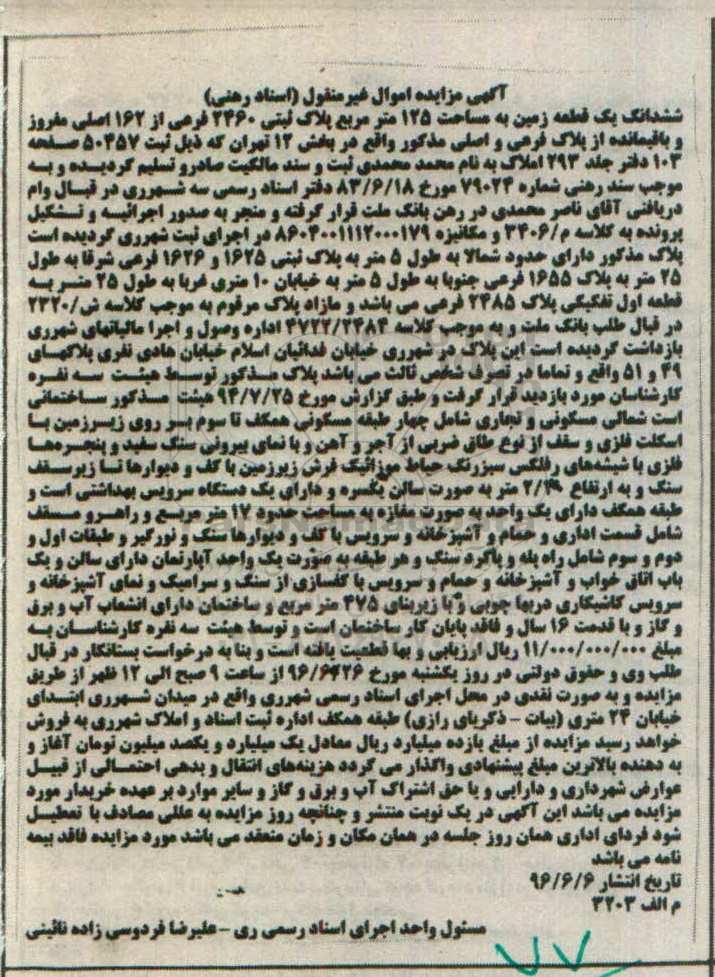 آگهی مزایده اموال غیرمنقول (اسناد رهنی)
ششدانگ یک قطعه زمین به مساحت ۱۲۵ متر مربع پلاک ثبتی ۲۴۶۰ فرعی از ۱۶۲ اصلی مفروز
و باقیمانده از پلاک فرعی و اصلی مذکور واقع در بخش ۱۲ تهران که ذیل ثبت ۵۰۴۵۷ صفحه
۱۰۳ دفتر جلد ۲۹۳ املاک به نام محمد محمدی ثبت و سند مالکیت صادرو تسلیم گردیده و به
موجب سند رهنی شماره ۷۹۰۲۴ مورخ ۸۳/۶/۱۸ دفتر اسناد رسمی سه شهرری در قبال وام
دریافتی آقای ناصر محمدی در رهن بانک ملت قرار گرفته و منجر به صدور اجرائیه و تشکیل
پرونده به کلاسه م/۳۴۰۶ و مکانیزه ۸۶۰۴۰۰۱۱۱۲۰۰۰۱۷۹ در اجرای ثبت شهرری گردیده است
پلاک مذکور دارای حدود شمالا به طول ۵ متر به پلاک ثبتی ۱۶۲۵ و ۱۶۲۶ فرعی شرقا به طول
۲۵ متر به پلاک ۱۶۵۵ فرعی جنوبا به طول ۵ متر به خیابان ۱۰ متری غربا به طول ۲۵ متر به
قطعه اول تفکیکی پلاک ۲۴۸۵ فرعی می باشد و مازاد پلاک مرقوم به موجب کلاسه ش/۲۳۲۰
در قبال طلب بانک ملت و به موجب کلاسه ۴۷۲۲/۲۴۸۴ اداره وصول و اجرا مالیاتهای شهرری
بازداشت گردیده است این پلاک در شهرری خیابان فدائیان اسلام خیابان هادی نفری پلاکهای
۴۹ و ۵۱ واقع و تماما در تصرف شخص ثالث می باشد پلاک مذکور توسط هیئت سه نفره
کارشناسان مورد بازدید قرار گرفت و طبق گزارش مورخ ۹۴/۷/۲۵ هیئت مذکور ساختمانی
است شمالی مسکونی و تجاری شامل چهار طبقه مسکونی همکف تا سوم بر روی زیرزمین با
اسکلت فلزی و سقف از نوع طاق ضربی از آجر و آهن و با نمای بیرونی سنگ سفید و پنجره‌ها
فلزی با شیشه‌های رفلکس سبزرنگ حیاط موزائیک فرش زیرزمین با کف و دیوارها تا زیرسقف
سنگ و به ارتفاع ۲/۴۹ متر به صورت سالن یکسره و دارای یک دستگاه سرویس بهداشتی است و
طبقه همکف دارای یک واحد به صورت مغازه به مساحت حدود ۱۷ متر مربع و راهرو مسقف
شامل قسمت اداری و حمام و آشپزخانه و سرویس با کف و دیوارها سنگ و نورگیر و طبقات اول و
دوم و سوم شامل راه پله و پاگرد سنگ و هر طبقه به صورت یک واحد آپارتمان دارای سالن و یک
باب اتاق خواب و آشپزخانه و حمام و سرویس با کفسازی از سنگ و سرامیک و نمای آشپزخانه و
سرویس کاشیکاری دربها چوبی و با زیربنای ۴۷۵ متر مربع و ساختمان دارای انشعاب آب و برق
و گاز و با قدمت ۱۶ سال و فاقد پایان کار ساختمان است و توسط هیئت سه نفره کارشناسان به
مبلغ ۱۱/۰۰۰/۰۰۰/۰۰۰ ریال ارزیابی و بها قطعیت یافته است و بنا به درخواست بستانکار در قبال
طلب وی و حقوق دولتی در روز یکشنبه مورخ ۹۶/۶/۲۶ از ساعت ۹ صبح الی ۱۲ ظهر از طریق
مزایده و به صورت نقدی در محل اجرای اسناد رسمی شهرری واقع در میدان شهرری ابتدای
خیابان ۲۴ متری (بیات - ذکریای رازی) طبقه همکف اداره ثبت اسناد و املاک شهرری به فروش
خواهد رسید مزایده از مبلغ یازده میلیارد ریال معادل یک میلیارد و یکصد میلیون تومان آغاز و
به دهنده بالاترین مبلغ پیشنهادی واگذار می گردد هزینه‌های انتقال و بدهی احتمالی از قبیل
عوارض شهرداری و دارایی و یا حق اشتراک آب و برق و گاز و سایر موارد بر عهده خریدار مورد
مزایده می باشد این آگهی در یک نوبت منتشر و چنانچه روز مزایده به عللی مصادف با تعطیل
شود فردای اداری همان روز جلسه در همان مکان و زمان منعقد می باشد مورد مزایده فاقد بیمه
نامه می باشد
تاریخ انتشار ۹۶/۶/۶
م الف ۳۲۰۳
مسئول واحد اجرای اسناد رسمی ری - علیرضا فردوسی زاده نائینی
۷۷